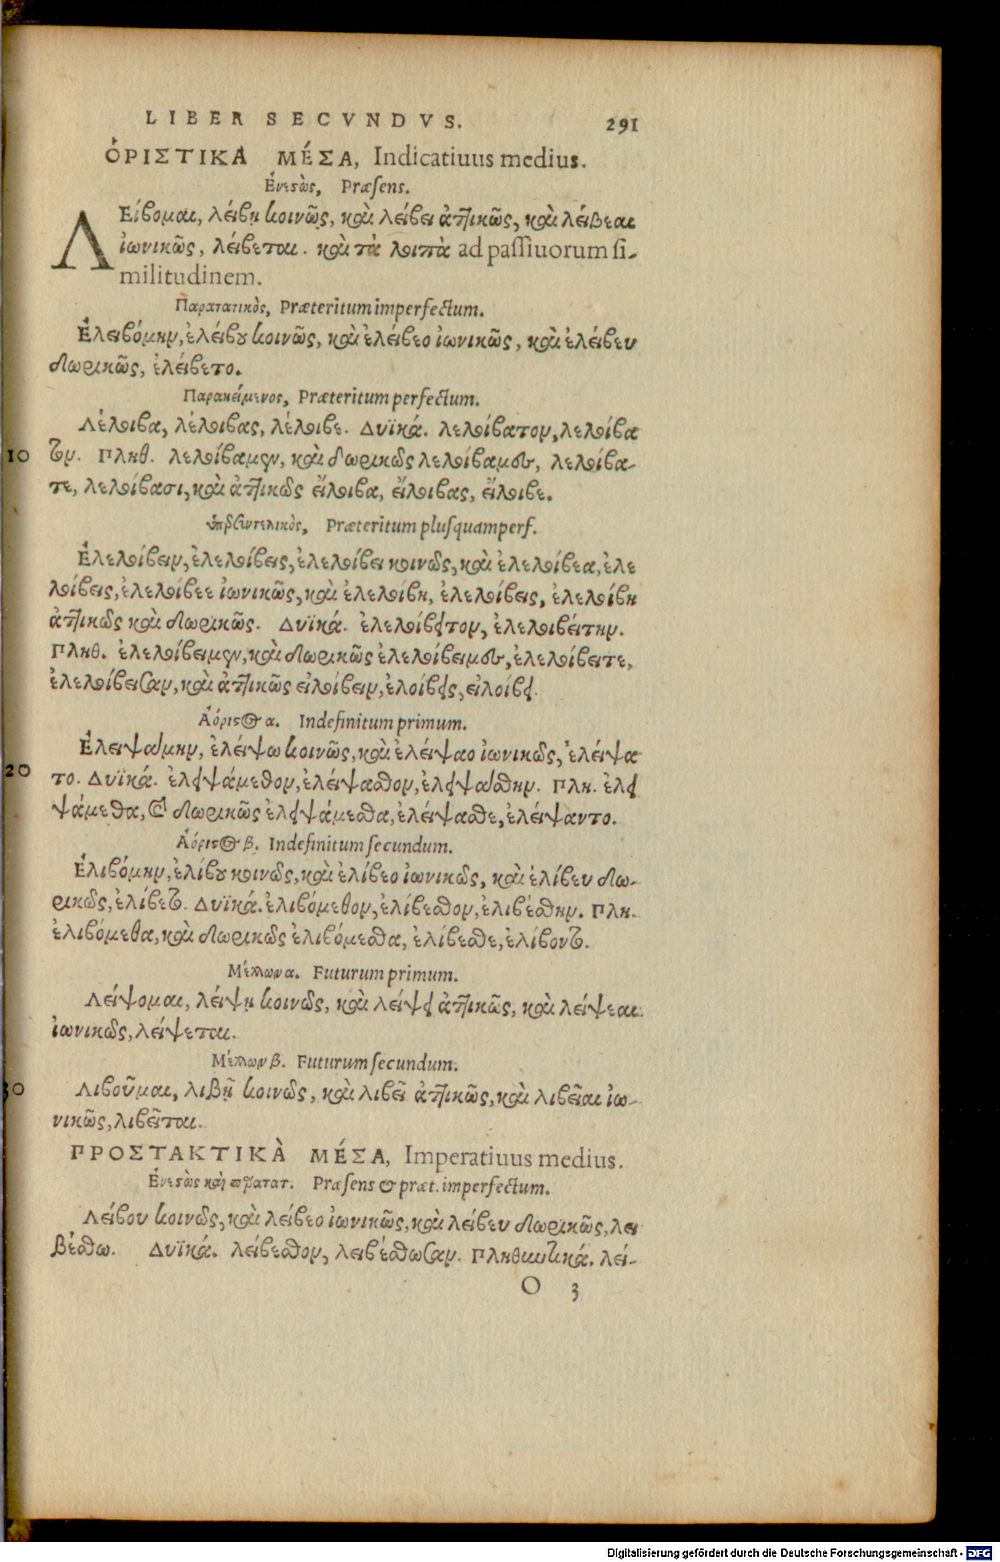 LIBER SECVNDVS. 291
ὉΡΙΣΤΙΚΑ ΜΈΣΑ, Indicatiuus medius.
Ἐνεστὼς, Præsens.
ΛΕίβομαι, λείβῃ κοινῶς, καὶ λείβει ἀττικῶς, καὶ λείβεαι
ἰωνικῶς, λείβεται. καὶ τὰ λοιπὰ ad passiuorum si-
militudinem.
Παρατατικὸς, Præteritum imperfectum.
Ἐλειβόμην, ἐλείβου κοινῶς, καὶ ἐλείβεο ἰωνικῶς, καὶ ἐλείβευ
δωρικῶς, ἐλείβετο.
Παρακείμενος, Præteritum perfectum.
Λέλοιβα, λέλοιβας, λέλοιβε. Δυϊκά. λελοίβατον, λελοίβα
10 τον. Πληθ. λελοίβαμεν, καὶ δωρικῶς λελοίβαμες, λελοίβα-
τε, λελοίβασι, καὶ ἀττικῶς εἴλοιβα, εἴλοιβας, εἴλοιβε.
ὑπερσυντελικὸς, Præteritum plusquamperf.
Ἐλελοίβειν, ἐλελοίβεις, ἐλελοίβει κοινῶς, καὶ ἐλελοίβεα, ἐλε
λοίβεις, ἐλελοίβεε ἰωνικῶς, καὶ ἐλελοίβη, ἐλελοίβεις, ἐλελοίβη
ἀττικῶς καὶ δωρικῶς. Δυϊκά. ἐλελοίβειτον, ἐλελοιβείτην.
Πληθ. ἐλελοίβειμεν, καὶ δωρικῶς ἐλελοίβειμες, ἐλελοίβειτε,
ἐλελοίβεισαν, καὶ ἀττικῶς εἰλοίβειν, ἐλοίβεις, εἰλοίβει.
Ἀόριστος α. Indefinitum primum.
Ἐλειψάμην, ἐλείψω κοινῶς, καὶ ἐλείψαο ἰωνικῶς, ἐλείψα
20 το. Δυϊκά. ἐλειψάμεθον, ἐλείψασθον, ἐλειψάσθην. Πλη. ἐλει
ψάμεθα, καὶ δωρικῶς ἐλειψάμεσθα, ἐλείψασθε, ἐλείψαντο.
Ἀόριστος β. Indefinitum secundum.
Ἐλιβόμην, ἐλίβου κοινῶς, καὶ ἐλίβεο ἰωνικῶς, καὶ ἐλίβευ δω-
ρικῶς, ἐλίβετο. Δυϊκά. ἐλιβόμεθον, ἐλίβεσθον, ἐλιβέσθην. Πλη.
ἐλιβόμεθα, καὶ δωρικῶς ἐλιβόμεσθα, ἐλίβεσθε, ἐλίβοντο.
Μέλλων α. Futurum primum.
Λείψομαι, λείψῃ κοινῶς, καὶ λείψει ἀττικῶς, καὶ λείψεαι
ἰωνικῶς, λείψεται.
Μέλλων β. Futurum secundum.
30 Λιβοῦμαι, λιβῇ κοινῶς, καὶ λιβεῖ ἀττικῶς, καὶ λιβεῖαι ἰω-
νικῶς, λιβεῖται.
ΠΡΟΣΤΑΚΤΙΚᾺ ΜΈΣΑ, Imperatiuus medius.
Ἐνεστὼς καὶ παρατατ. Præsens & præt. imperfectum.
Λείβου κοινῶς, καὶ λείβεο ἰωνικῶς, καὶ λείβευ δωρικῶς, λει
βέσθω. Δυϊκά. λείβεσθον, λειβέσθωσαν. Πληθυντικά. λεί-
O 3
Digitalisierung gefördert durch die Deutsche Forschungsgemeinschaft - DFG